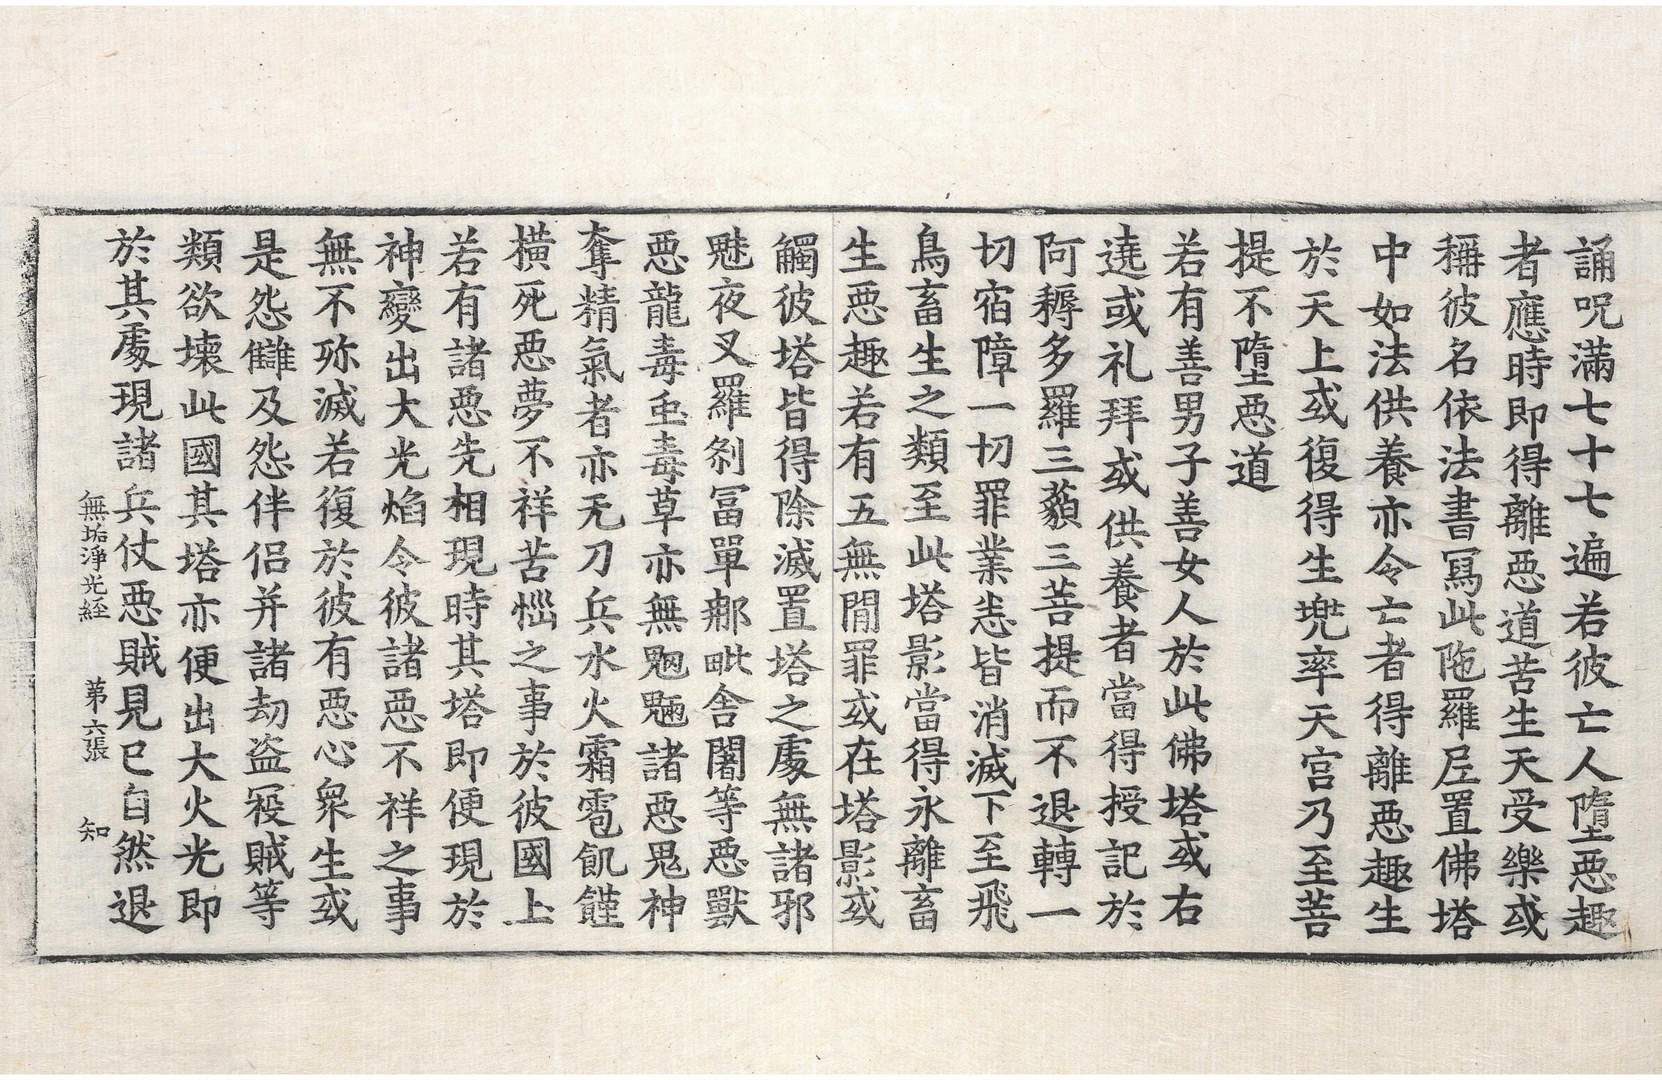 誦呪滿七十七遍若彼亡人墮惡趣
者應時即得離惡道苦生天受樂或
稱彼名依法書寫此陁羅尼置佛塔
中如法供養亦令亡者得離惡趣生
於天上或復得生兜率天宮乃至菩
提不墮惡道
若有善男子善女人於此佛塔或右
遶或礼拜或供養者當得授記於
阿耨多羅三藐三菩提而不退轉一
切宿障一切罪業悉皆消滅下至飛
鳥畜生之類至此塔影當得永離畜
生惡趣若有五無間罪或在塔影或
觸彼塔皆得除滅置塔之處無諸邪
魅夜叉羅刹冨單那毗舍闍等惡獸
惡龍毒虫毒草亦無魍魎諸惡鬼神
奪精氣者亦无刀兵水火霜雹飢饉
橫死惡夢不祥苦惱之事於彼國上
若有諸惡先相現時其塔即便現於
神變出大光焰令彼諸惡不祥之事
無不殄滅若復於彼有惡心衆生或
是怨讎及怨伴侣并諸劫盗㓂賊等
類欲壊此國其塔亦便出大火光即
於其處現諸兵仗惡賊見已自然退
無垢淨光経 第六張 知